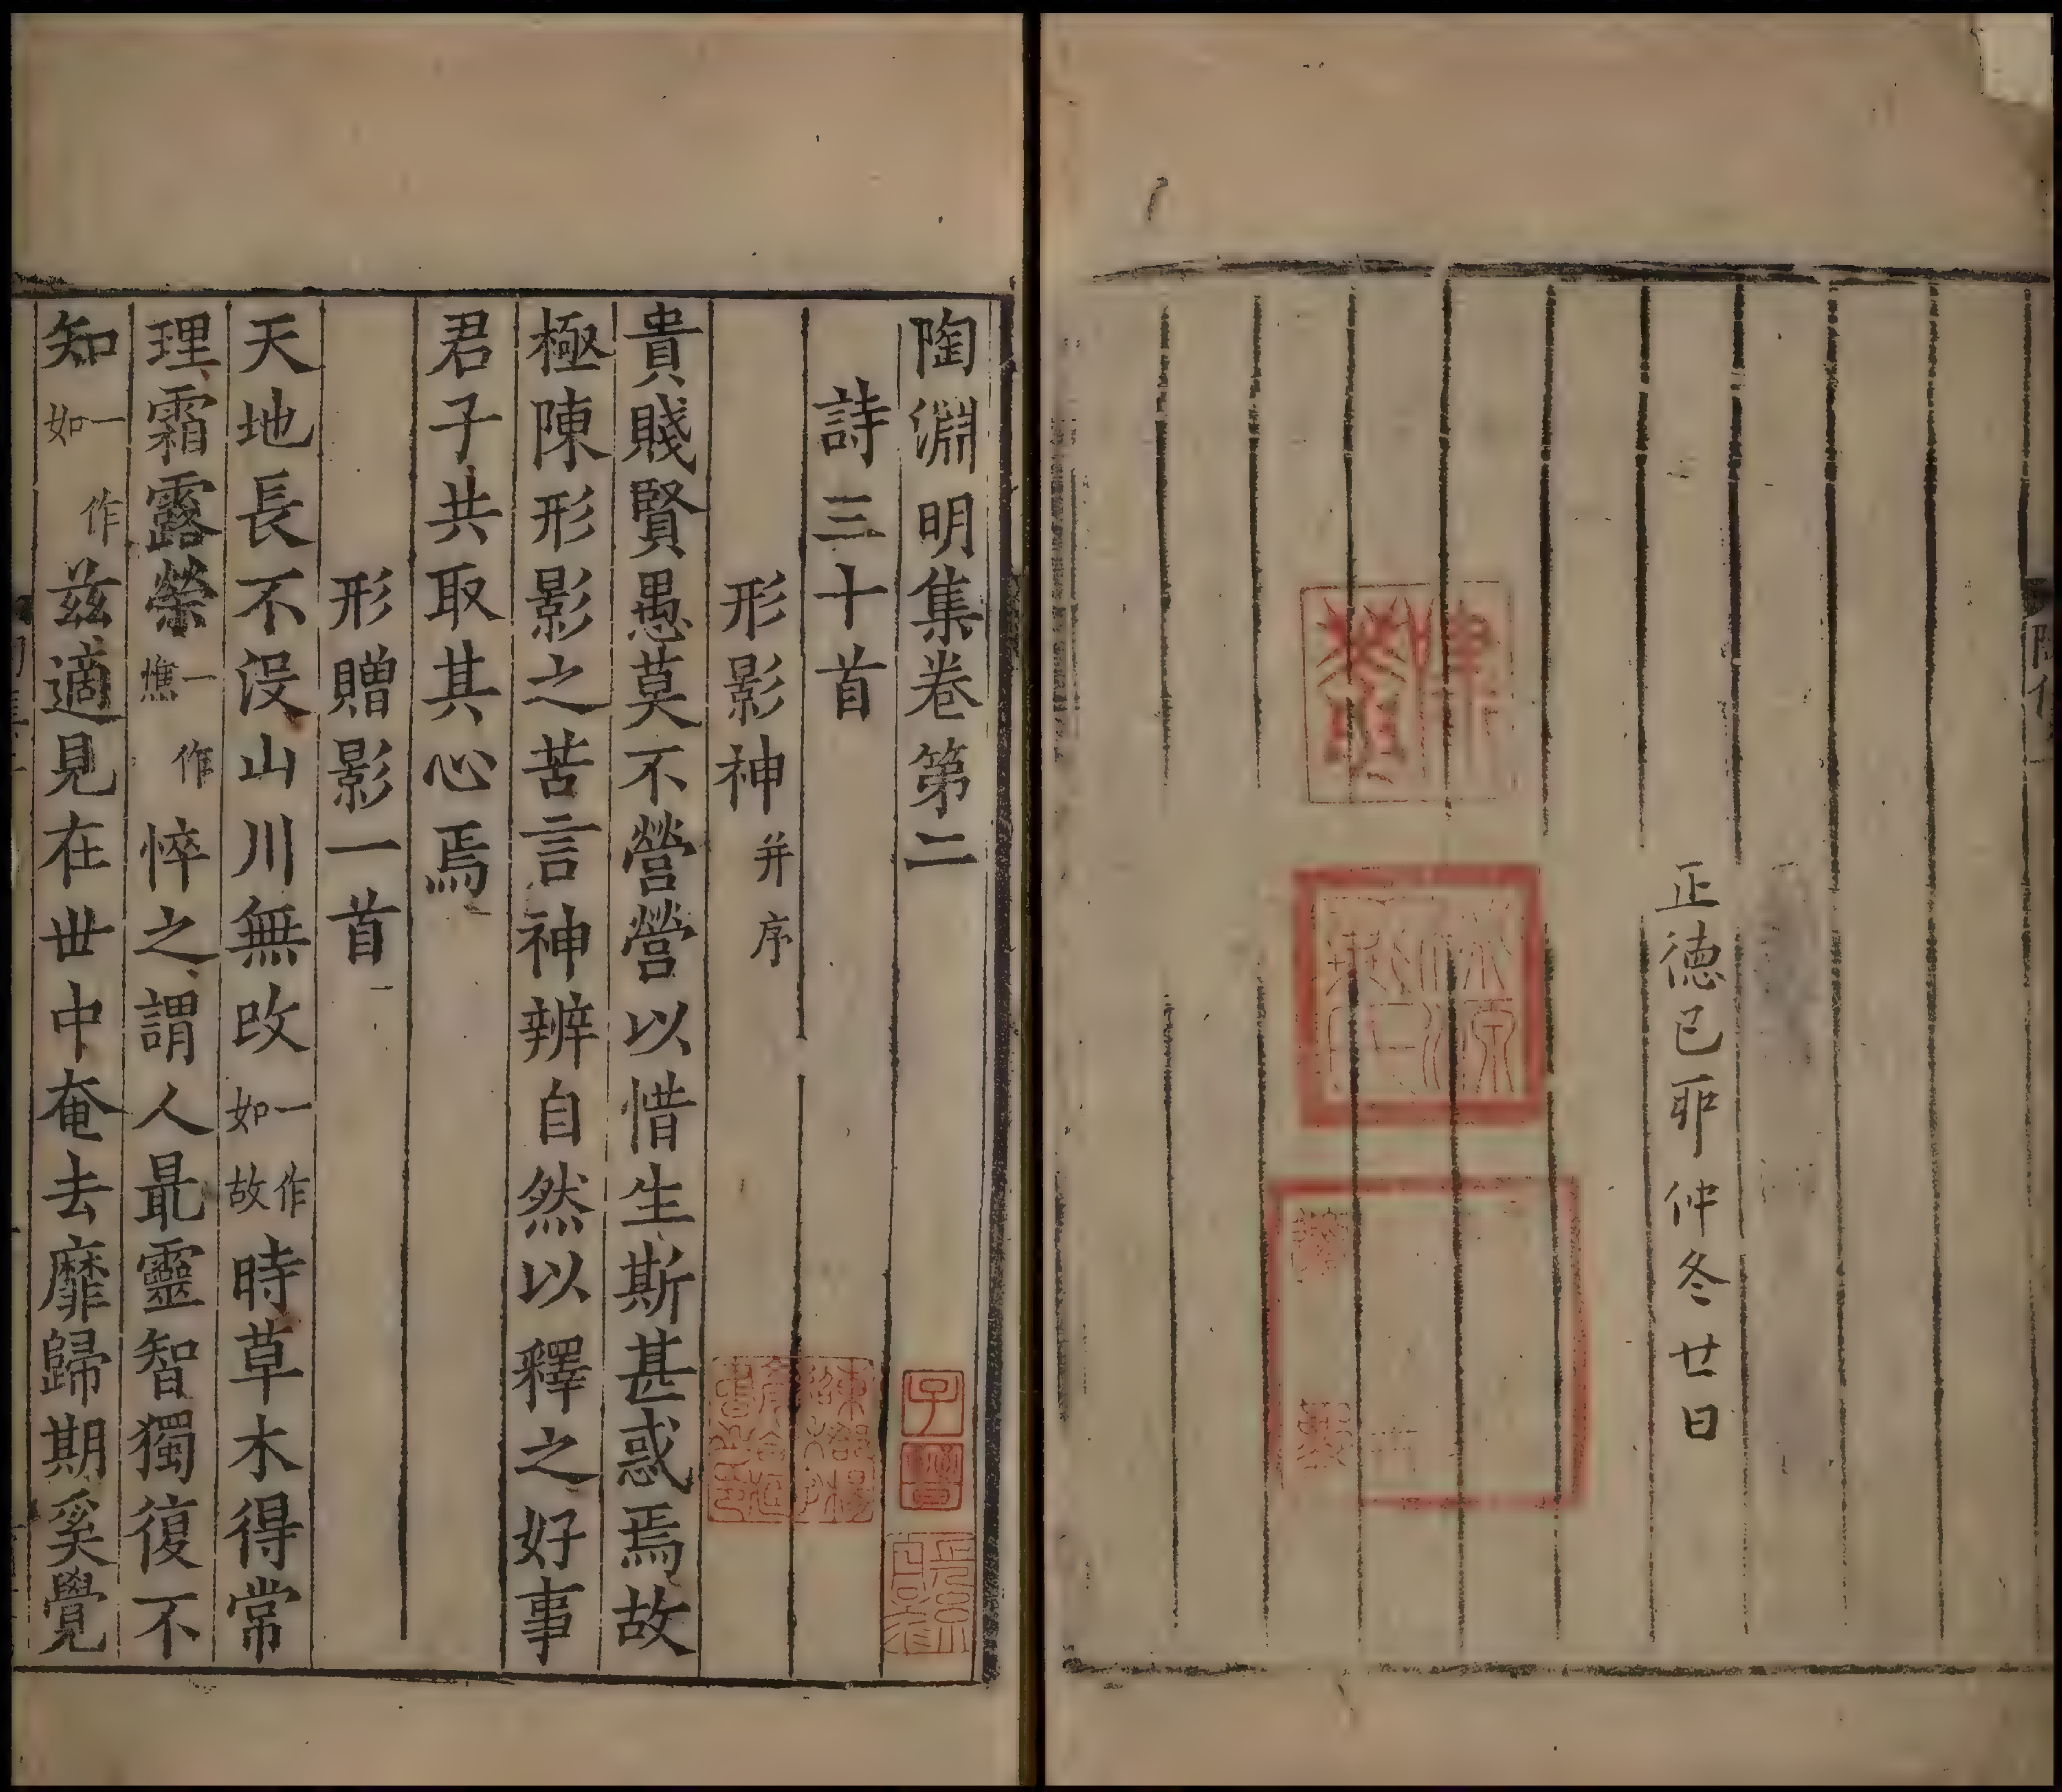 正德已耶仲冬廿日
陶淵明集卷第二
詩三十首
形影神并序
貴賤賢愚莫不營營以惜生斯甚惑焉故
極陳形影之苦言神辨自然以釋之好事
君子共取其心焉
形贈影一首
天地長不沒山川無改一作如故時草木得常
理霜露榮一作憔悴之謂人最靈智獨復不
知一作如兹適見在世中奄去靡歸期奚覺
子晉